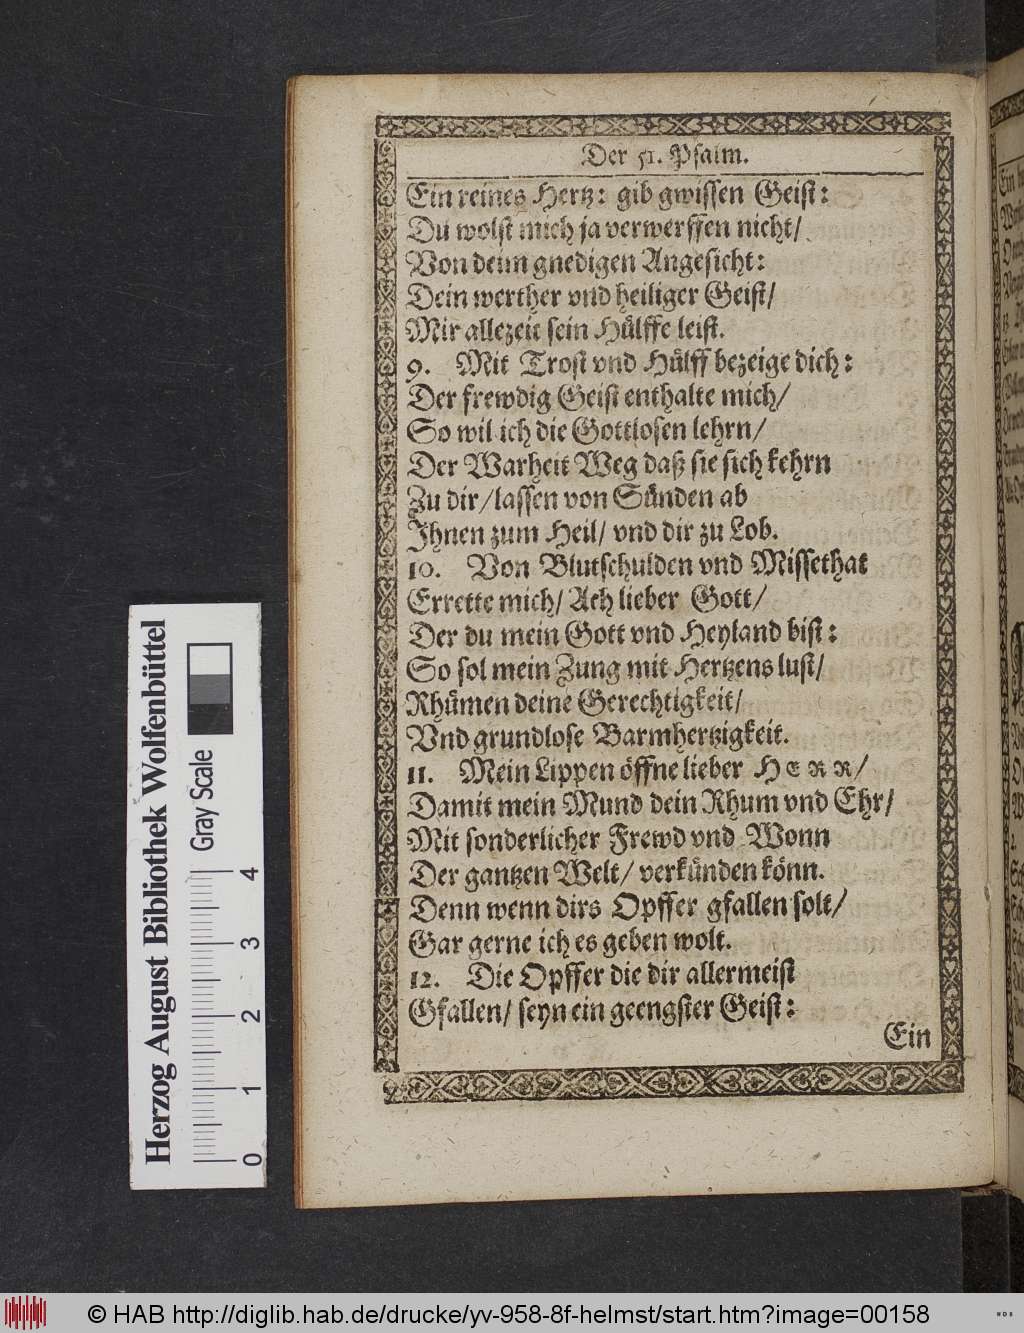 Der 51. Psalm.
Ein reines Hertz: gib gwissen Geist:
Du wolst mich ja verwerffen nicht/
Von deim gnedigen Angesicht:
Dein werther vnd heiliger Geist/
Mir allezeit sein Hülffe leist.
9. Mit Trost vnd Hülff bezeige dich:
Der frewdig Geist enthalte mich/
So wil ich die Gottlosen lehrn/
Der Warheit Weg daß sie sich kehrn
Zu dir/ lassen von Sünden ab
Ihnen zum Heil/ vnd dir zu Lob.
10. Von Blutschulden vnd Missethat
Errette mich/ Ach lieber Gott/
Der du mein Gott vnd Heyland bist:
So sol mein Zung mit Hertzens lust/
Rhümen deine Gerechtigkeit/
Vnd grundlose Barmhertzigkeit.
11. Mein Lippen öffne lieber HERR/
Damit mein Mund dein Rhum vnd Ehr/
Mit sonderlicher Frewd vnd Wonn
Der gantzen Welt/ verkünden könn.
Denn wenn dirs Opffer gfallen solt/
Gar gerne ich es geben wolt.
12. Die Opffer die dir allermeist
Gfallen/ seyn ein geengster Geist:
Ein
Herzog August Bibliothek Wolfenbüttel
Gray Scale
0 1 2 3 4
© HAB http://diglib.hab.de/drucke/yv-958-8f-helmst/start.htm?image=00158